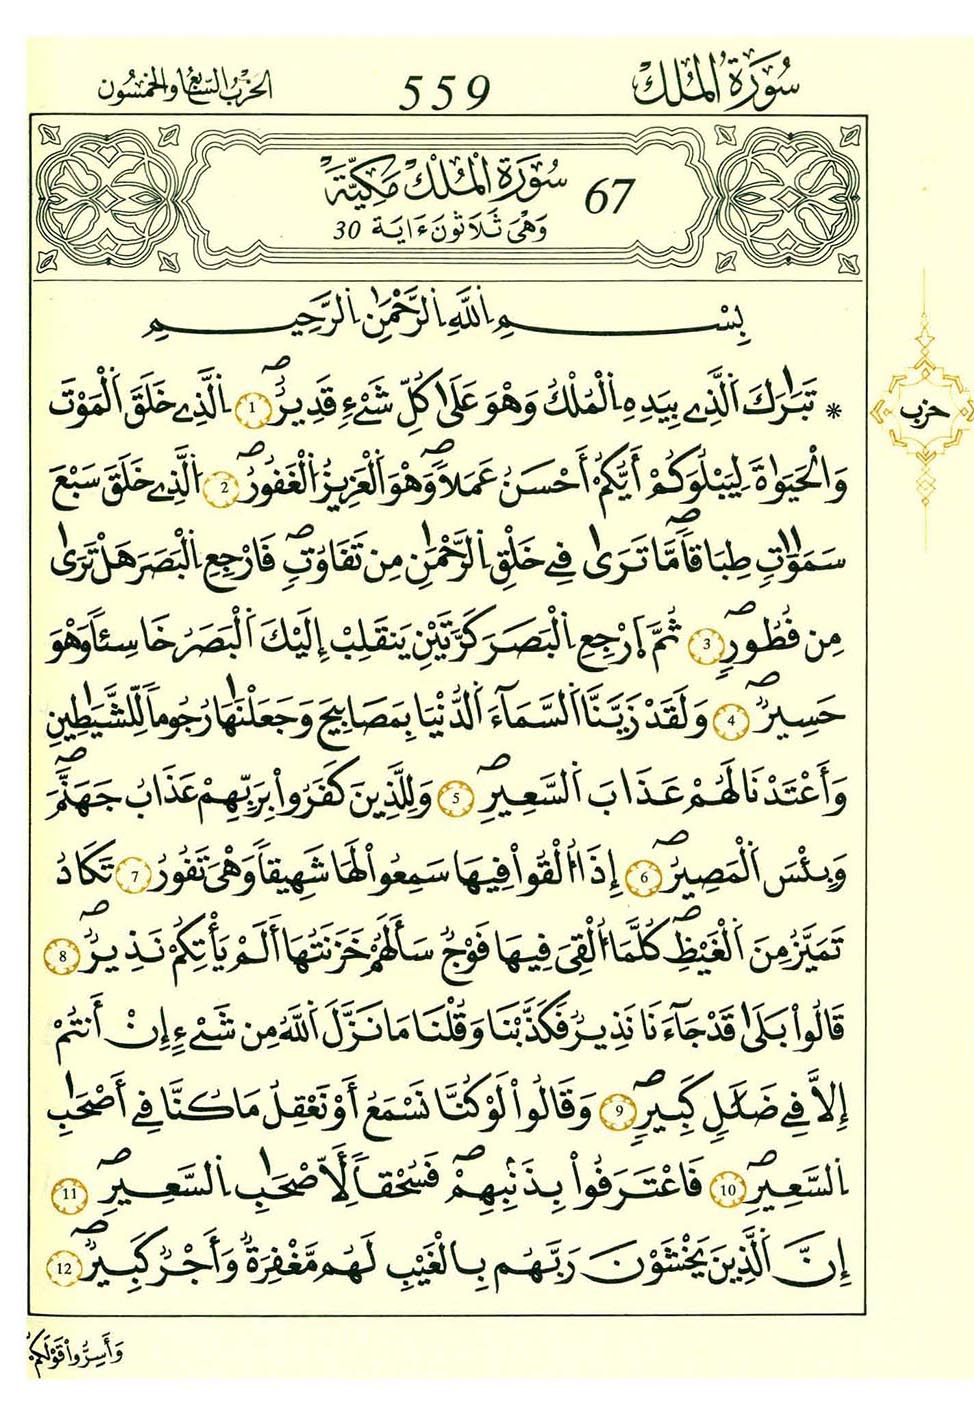 سُورَةُ الْمُلْكِ
559
الحِزْبُ السَّابِعُ وَالخَمْسُون
67 سُورَةُ الْمُلْكِ مَكِيَّةٌ
وَهْيَ ثَلَاثُونَ ءَايَة 30
بِسْمِ اِللَّهِ اِلرَّحْمَٰنِ اِلرَّحِيمِ
* تَبَٰرَكَ اَلَّذِے بِيَدِهِ اِلْمُلْكُ وَهْوَ عَلَىٰ كُلِّ شَےْءٖ قَدِيرٌۖ 1 اِلَّذِے خَلَقَ اَلْمَوْتَ
حزب
وَالْحَيَوٰةَ لِيَبْلُوَكُمُۥٓ أَيُّكُمُۥٓ أَحْسَنُ عَمَلاٗۖ وَهْوَ اَلْعَزِيزُ اُلْغَفُورُۖ 2 اُلَّذِے خَلَقَ سَبْعَ
سَمَٰوَٰتٖ طِبَاقاٗۖ مَّا تَرَىٰ فِے خَلْقِ اِلرَّحْمَٰنِ مِن تَفَٰوُتٖۖ فَارْجِعِ اِلْبَصَرَ هَلْ تَرَىٰ
مِن فُطُورٖۖ 3 ثُمَّ اَرْجِعِ اِلْبَصَرَ كَرَّتَيْنِ يَنقَلِبِ اِلَيْكَ اَلْبَصَرُ خَاسِئاٗ وَهْوَ
حَسِيرٞۖ 4 وَلَقَدْ زَيَّنَّا اَلسَّمَآءَ اَلدُّنْيَا بِمَصَٰبِيحَ وَجَعَلْنَٰهَا رُجُوماٗ لِّلشَّيَٰطِينِ
وَأَعْتَدْنَا لَهُمْ عَذَابَ اَلسَّعِيرِۖ 5 وَلِلَّذِينَ كَفَرُواْ بِرَبِّهِمْ عَذَابُ جَهَنَّمَۖ
وَبِئْسَ اَلْمَصِيرُۖ 6 إِذَآ أُلْقُواْ فِيهَا سَمِعُواْ لَهَا شَهِيقاٗ وَهْيَ تَفُورُ 7 تَكَادُ
تَمَيَّزُ مِنَ اَلْغَيْظِۖ كُلَّمَآ أُلْقِيَ فِيهَا فَوْجٞ سَأَلَهُمْ خَزَنَتُهَآ أَلَمْ يَأْتِكُمْ نَذِيرٞۖ 8
قَالُواْ بَلَىٰ قَدْ جَآءَنَا نَذِيرٞ فَكَذَّبْنَا وَقُلْنَا مَا نَزَّلَ اَللَّهُ مِن شَےْءٍ إِنْ أَنتُمْ
إِلاَّ فِے ضَلَٰلٖ كَبِيرٖۖ 9 وَقَالُواْ لَوْ كُنَّا نَسْمَعُ أَوْ نَعْقِلُ مَا كُنَّا فِے أَصْحَٰبِ
اِلسَّعِيرِۖ 10 فَاعْتَرَفُواْ بِذَنۢبِهِمْۖ فَسُحْقاٗ لِّأَصْحَٰبِ اِلسَّعِيرِۖ 11
إِنَّ اَلَّذِينَ يَخْشَوْنَ رَبَّهُم بِالْغَيْبِ لَهُم مَّغْفِرَةٞ وَأَجْرٞ كَبِيرٞۖ 12
وَأَسِرُّواْ قَوْلَكُمُ